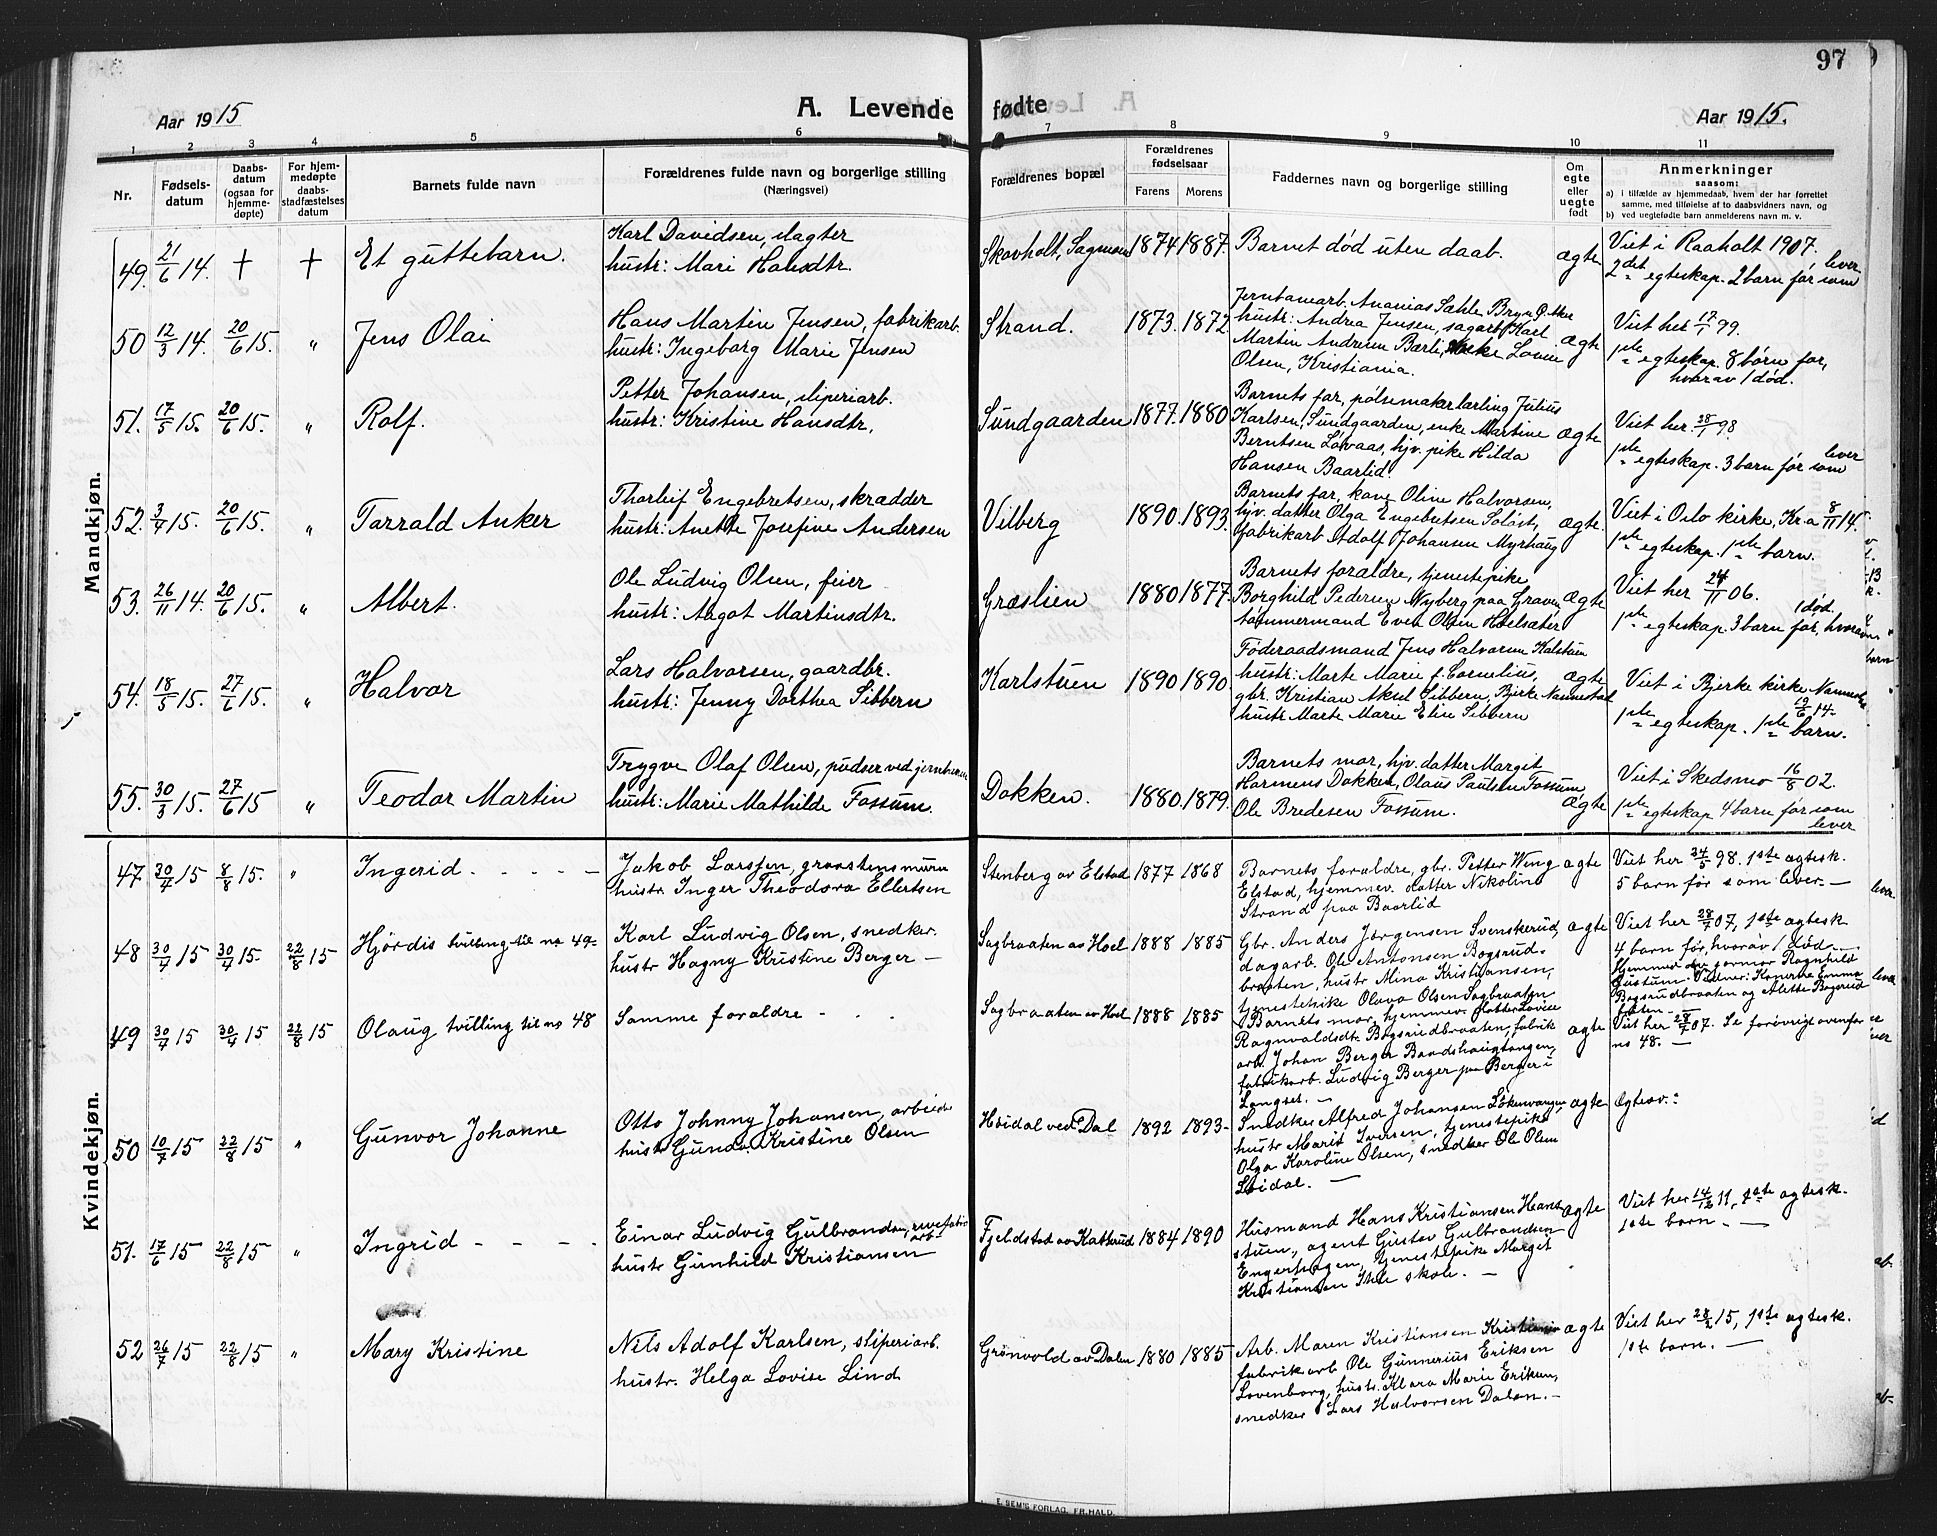 97
Aar 1915
A. Levende
fødte
Aar 1915.
1 2 3 4 5 6 7 8 9 10 11
Nr.
Fødsels-
datum
Daabs-
datum
(ogsaa for
hjemme-
døpte)
For hjem-
medøpte
daabs-
stadfæstelses
datum
Barnets fulde navn
Forældrenes fulde navn og borgerlige stilling
(Næringsvei)
Forældrenes bopæl
Forældrenes
fødselsaar
Farens Morens
Faddernes navn og borgerlige stilling
Om
egte
eller
uegte
født
Anmerkninger
saasom:
a) i tilfælde av hjemmedaab, hvem der har forrettet
samme, med tilføielse af to daabsvidners navn, og
b) ved uegtefødte barn anmelderens navn m. v.
Mandkjøn.
49. 21/6 14. + + Et guttebarn.
Karl Davidsen, slagter
hustr: Mari Hansdtr.
Skovholt, Sagmoen 1874 1887. Barnet død uten daab. ægte
Viet i Raaholt 1907.
2det egteskap. 2 barn før som lever
50 12/3 14. 20/6 15. " Jens Olai
Hans Martin Jensen, fabrikarb.
hustr: Ingeborg Marie Jensen
Strand. 1873. 1872
hustr: Andrea Jensen, sagarb. Karl
Olsen, Kristiania.
ægte
Viet her 17/1 99.
1ste egteskap. 8 børn før,
hvorav 1 død.
51. 17/5 15. 20/6 15. " Rolf.
Petter Johansen, sliperiarb.
hustr: Kristine Hansdtr.
Sundgaarden 1877. 1880
Barnets far, pølsemakerlærling Julius
Karlsen, Sundgaarden, enke Martine
Berntsen Løvaas, hjv. pike Hilda
Hansen Baarlid.
ægte
Viet her 28/1 98
1ste egteskap. 3 barn før som lever
52. 3/4 15. 20/6 15. " Tarrald Anker
Thorleif Engebretsen, skrædder
hustr: Anette Josefine Andersen
Vilberg 1890. 1893.
Barnets far, kone Oline Halvorsen,
hjv. datter Olga Engebretsen Soløst,
fabrikarb Adolf Johansen Myrhaug
ægte.
Viet i Oslo kirke, Kr.a 8/11 14.
1ste egteskap. 1ste barn.
53. 26/11 14. 20/6 15. " Albert.
Ole Ludvig Olsen, feier
hustr: Aagot Martinsdtr.
Græslien 1880 1877.
Barnets forældre, tjenestepike
Borghild Pedersen Nyberg paa Graven
tømmermand Even Olsen Hoelsæter
ægte
Viet her 24/11 06.
1ste egteskap. 3 barn før, hvorav 1 død.
54. 18/5 15. 27/6 15. " Halvor
Lars Halvorsen, gaardbr.
hustr: Jenny Dorthea Sibbern
Karlstuen 1890 1890.
Føderaadsmand Jens Halvorsen Kalstuen
hustr: Marte Marie f. Cornelius,
gbr. Kristian Aksel Sibbern, Bjerke Nannestad
hustr Marte Marie Elise Sibbern
ægte
Viet i Bjerke kirke Nannestad
19/6 14.
1ste egteskap. 1ste barn.
55. 30/3 15. 27/6 15 " Teodor Martin
Trygve Olaf Olsen, pudser ved jernbanen
hustr: Marie Mathilde Fossum.
Dokken. 1880. 1879.
Barnets mor, hjv. datter Margit
Harmens Dokken, Olaus Paulsen Fossum,
Ole Bredesen Fossum.
ægte
Viet i Skedsmo 16/8 02.
1ste egteskap 4 barn før som
lever
Kvindekjøn.
47. 30/4 15 8/8 15. " Ingerid - - - -
Jakob Larssen, graastensmurer
hustr Inger Theodora Ellertsen
Stenberg av Elstad 1877 1868
Barnets forældre, gbr. Petter Wing
Elstad, hjemmev. datter Nikoline
Strand paa Baarlid
ægte
Viet her 98. 1ste ægtesk.
5 barn før som lever. —
48 30/4 15 30/4 15. 22/8 15 Hjørdis tvilling til no 49-
Karl Ludvig Olsen, snedker.
hustr Hagny Kristine Berger —
Sagbraaten av Hoel 1888 1885
Gbr. Anders Jørgensen Svenskerud,
dagarb. Ole Antonsen Bogsrud-
braaten, hustr Mina Kristiansen,
tjenestepike Olava Olsen Sagbraaten
ægte
Viet her 28/7 07, 1ste ægtesk.
4 barn før, hvorav 1 død. —
Bogsrudbraaten og Alette Bogsrud
braaten —
49 30/4 15 30/4 15 22/8 15 Olaug tvilling til no 48
Samme forældre - - -
Sagbraaten av Hoel 1888 1885
Barnets mor, hjemmev. datter Lovise
Ragnvaldsdtr. Bogsrudbraaten, fabrik
arb. Johan Berger Baadshaugtangen,
fabrikarb. Ludvig Berger paa Berger i
Langset. —
ægte
Viet her 28/7 07. Se forøvrigt ovenfor
no 48. —
50 10/7 15 22/8 15 " Gunvor Johanne
Otto Johnny Johansen, arbeider
hustr Gunda Kristine Olsen
Høidal ved Dal 1892 1893-
Snedker Alfred Johansen Løkenvangen,
hustr Marit Iversen, tjenestepike
Olga Karoline Olsen, snedker Ole Olsen
ægte
51. 17/6 15 22/8 15 " Ingrid - - - -
Einar Ludvig Gulbrandsen,
hustr Gunhild Kristiansen
Fjeldstad av Katterud 1884 1890
Husmand Hans Kristiansen Hans-
stuen, agent Gustav Gulbrandsen
Engerhagen, tjenestepike Margit
Kristiansen Ihle skole. —
ægte
Viet her 14/12 11, 1ste ægtesk.
1ste barn. —
52 26/7 15 22/8 15 " Mary Kristine
Nils Adolf Karlsen, sliperiarb.
hustr. Helga Lovise Lind
Grønvold av Dalen 1880 1885
Arb. Maren Kristiansen
fabrikarb Ole Gunnerius Eriksen
Lovenborg, hustr. Klara Marie Eriksen,
snedker Lars Halvorsen Dalen. —
ægte
Viet her 28/2 15, 1ste ægtesk.
1ste barn. —
E. SEM'S FORLAG, FR.HALD.